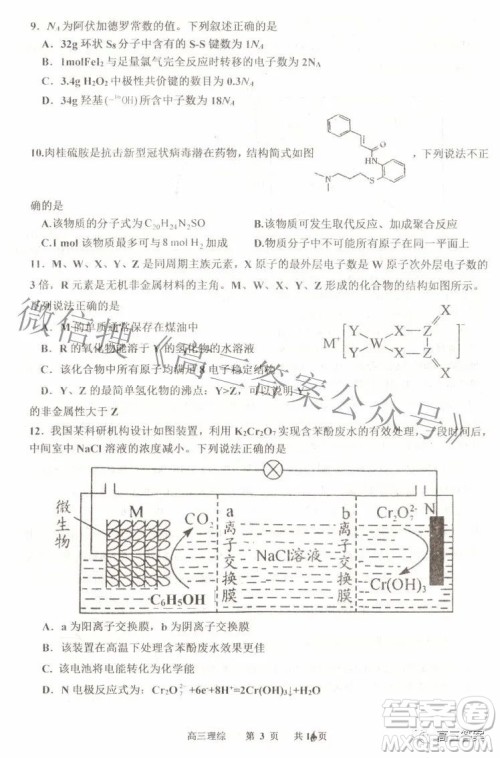 9．Nₐ为阿伏加德罗常数的值。下列叙述正确的是
A．32g 环状 S₈ 分子中含有的 S-S 键数为 1Nₐ
B．1molFeI₂ 与足量氯气完全反应时转移的电子数为 2Nₐ
C．3.4g H₂O₂ 中极性共价键的数目为 0.3Nₐ
D．34g 羟基(-¹⁸OH) 所含中子数为 18Nₐ
10.肉桂硫胺是抗击新型冠状病毒潜在药物，结构简式如图
，下列说法不正
O
HN
N
S
确的是
A.该物质的分子式为 C₂₀H₂₄N₂SO
B.该物质可发生取代反应、加成聚合反应
C.1 mol 该物质可与 8 mol H₂ 加成
D.该物质
11．M、W、X、Y、Z 是同周期主族元素，X 原子的最外层电子数是 W 原子次外层电子数的
3 倍。R 元素是无机非金属材料的主角。M、W、X、Y、Z 形成的化合物的结构如图所示。
下列说法正确的是
A．M 的单质通常保存在煤油中
B．R 的氧化物能溶于 Y 的氢化物的水溶液
C．
D．Y、Z 的最简单氢化物的沸点：Y>Z
的非金属性大于 Z
M⁺
Y X Z X
W
Y X Z X
12．我国某科研机构设计如图装置，利用 K₂Cr₂O₇ 实现含苯酚废水的有效处理，一段时间后，
中间室中 NaCl 溶液的浓度减小。下列说法正确的是
微生物
M
CO₂
C₆H₅OH
a
离子交换膜
NaCl溶液
b
离子交换膜
Cr₂O₇²⁻
N
Cr(OH)₃
A．a 为阳离子交换膜，b 为阴离子交换膜
B．该装置在高温下处理含苯酚废水效果更佳
C．该电池将电能转化为化学能
D．N 电极反应式为：Cr₂O₇²⁻+6e⁻+
H₂O=2Cr(OH)₃↓+
高三理综 第 3 页 共 16 页
微信搜《高三答案公众号》
答案圈
高三答案